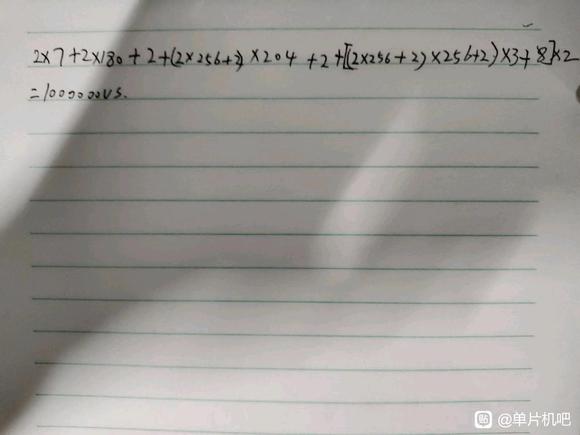 2×7+2×180+2+(2×256+2)×204+2+[((2×256+2)×256+2)×3+8]×2
=1000000us.
贴 @单片机吧